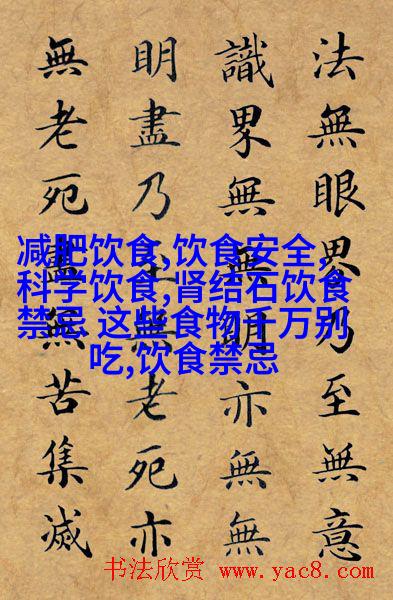 法無眼界乃至無意
識界無無明亦無無
明盡乃至無老死亦
無老死盡無苦集滅
减肥饮食,饮食安全,
科学饮食,肾结石饮食
禁忌 这些食物千万别
吃,饮食禁忌
书法欣赏 www.yac8.com